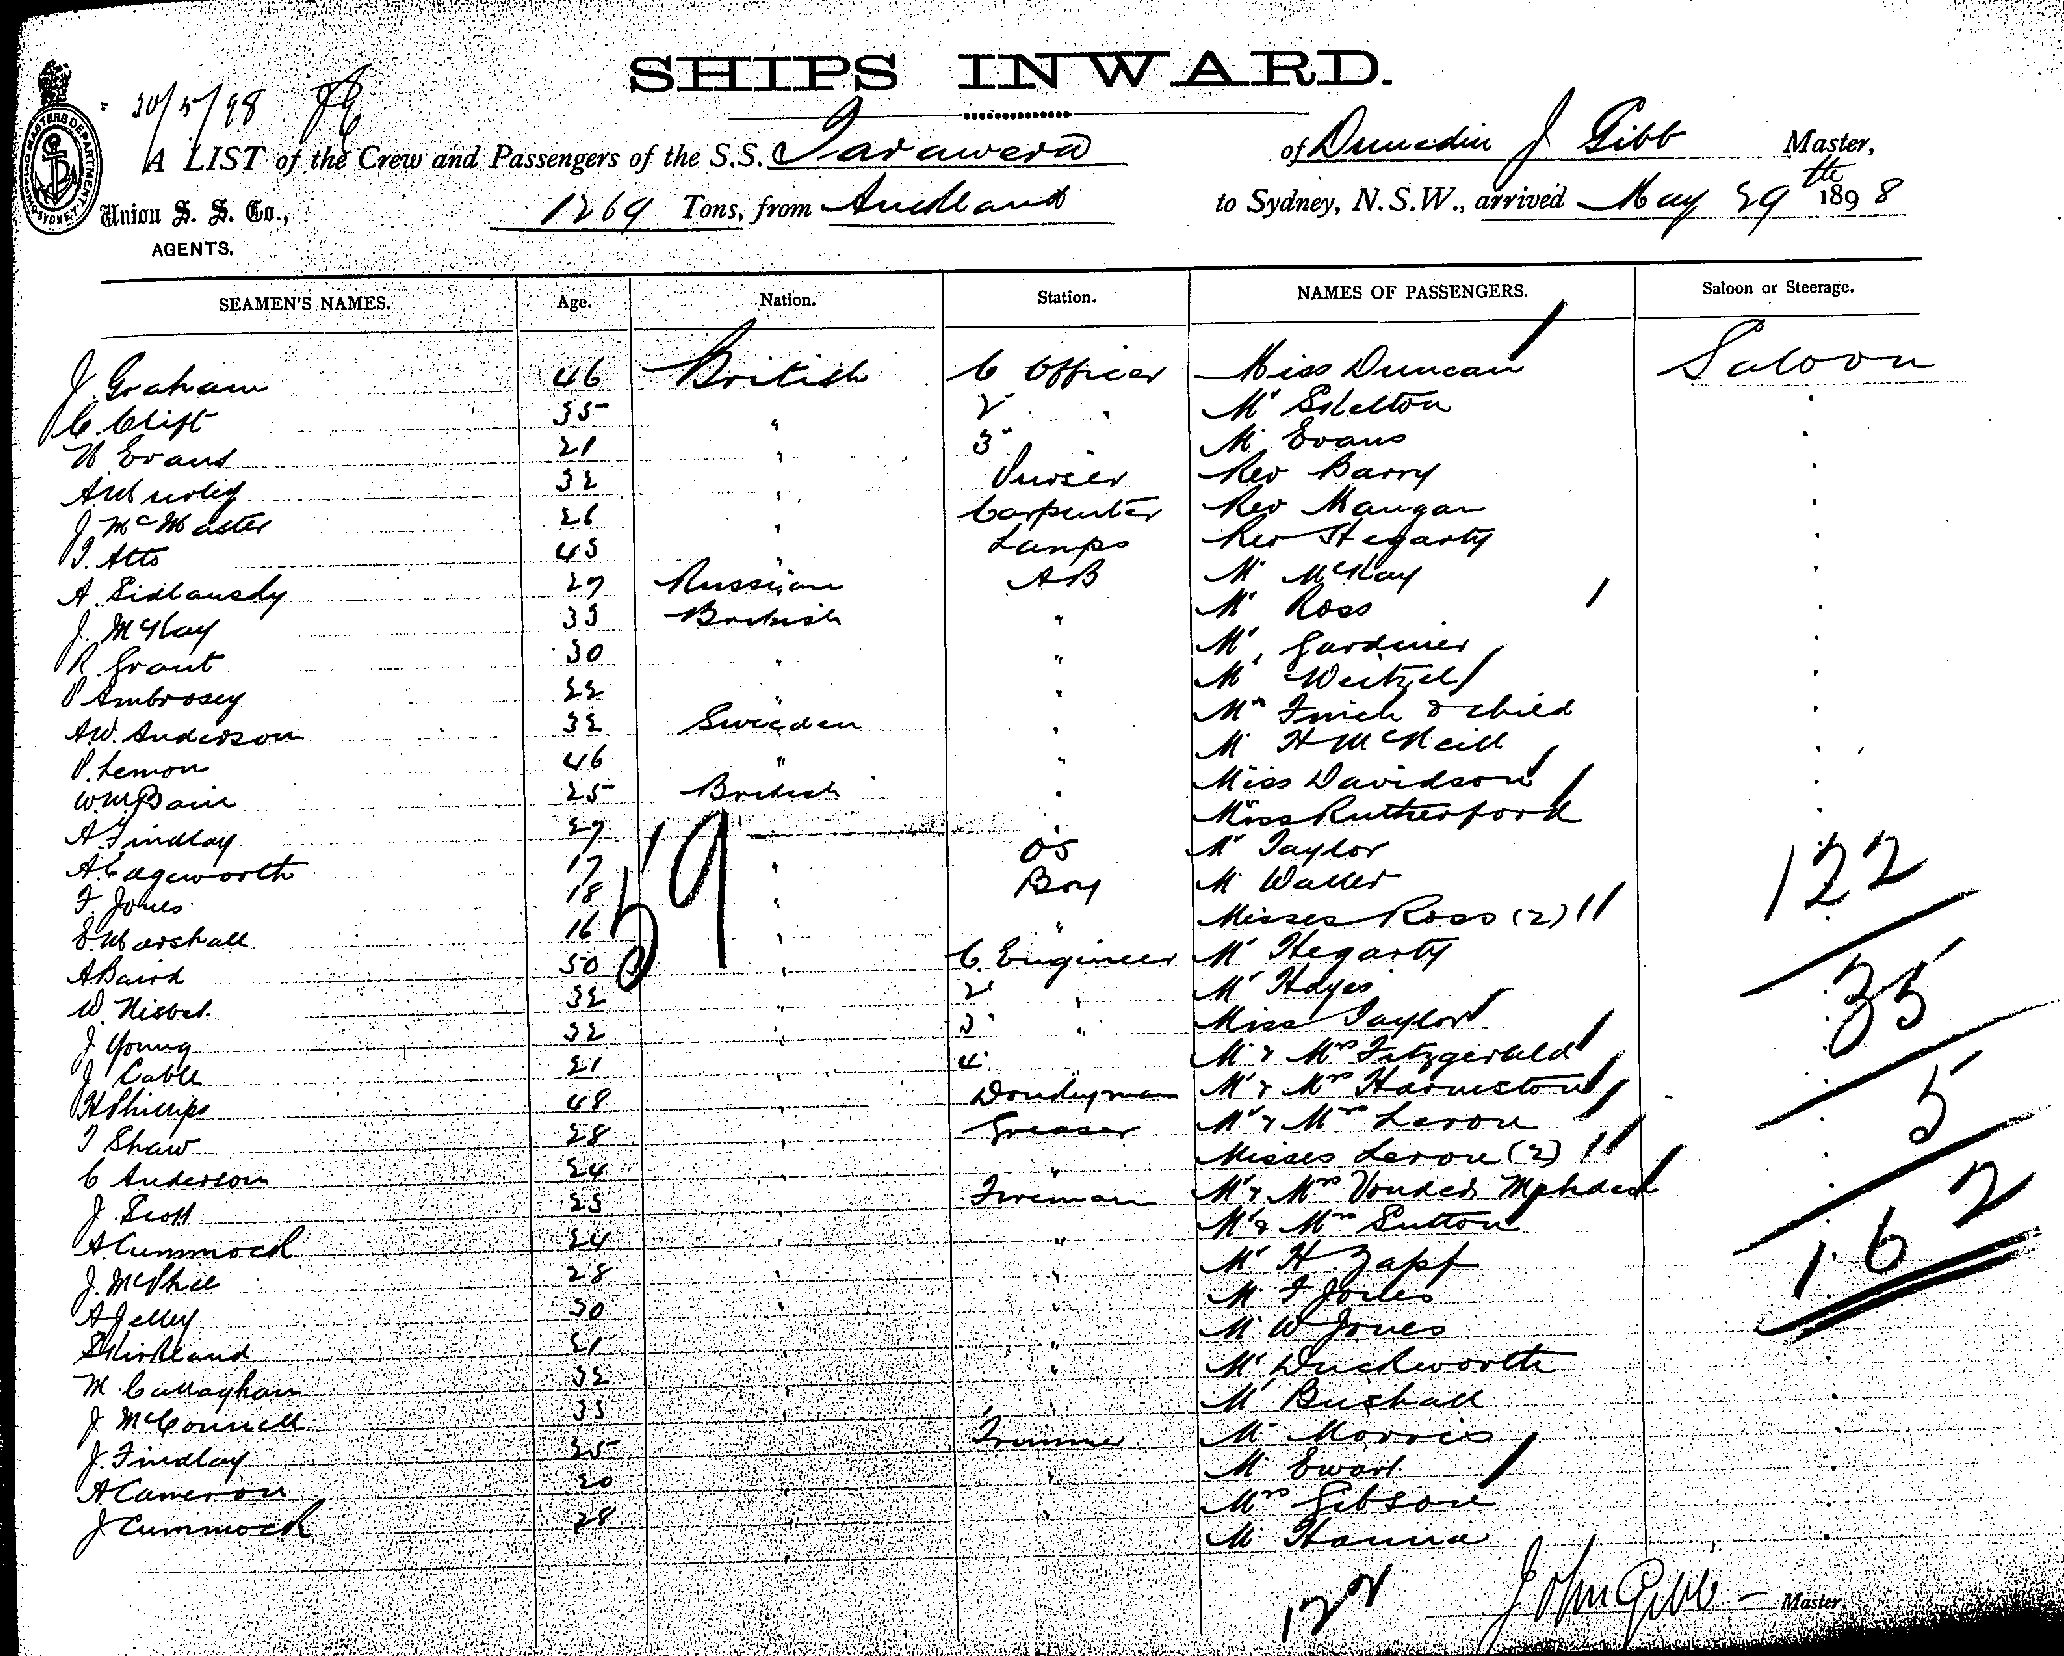 SHIPS INWARD.
30/5/98
A LIST of the Crew and Passengers of the S.S. Tarawera of Dunedin J Gibb Master,
Union S. S. Co., 1269 Tons, from Auckland to Sydney, N.S.W., arrived May 29th 1898
AGENTS.
SEAMEN'S NAMES. Age. Nation. Station. NAMES OF PASSENGERS. Saloon or Steerage.
J. Graham 46 British C Officer Miss Duncan Saloon
C. Clift 35 " 2 " Mr Skelton "
W Evans 21 " 3 " Mr Evans "
32 " Purser Rev Barry "
J. McMaster 26 " Carpenter Rev Mangan "
T. Atto 43 " Lamps Rev Hegarty "
A. Sidlausky 27 Russian AB Mr McKay "
J. McKay 33 British " Mr Ross "
R. Grant 30 " " Mr Gardiner "
P Ambrosey 22 " " Mr Weitzel "
A.W. Anderson 32 Sweeden " Mrs Finch & child "
P. Lemon 46 " " Mr H McNeill "
Wm Bain 25 British " Miss Davidson "
A. Findlay 27 " " Miss Rutherford "
A Edgeworth 17 " OS Mr Taylor
F. Jones 18 " Boy Mr Waller 122
E Marshall 16 " " Misses Ross (2)
59
A Baird 50 " C. Engineer Mr Hegarty
W. Nisbet 32 " 2 " Mr Hayes 35
J Young 32 " 3 " Miss Taylor
J Cable 21 " 4 Mr & Mrs Fitzgerald
H Phillips 48 " Donkeyman Mr & Mrs Harmston 5
T Shaw 28 " Greaser Mr & Mrs Leron
C Anderson 24 " " Misses Leron (2)
J. Scott 23 " Fireman Mr & Mrs Vonder
A Cummock 24 " " Mr & Mrs Sutton 162
J. McPhee 28 " " Mr H. Zapf
A Jelley 30 " " Mr F Jones
S Kirkland 21 " " Mr W Jones
M Callaghan 32 " " Mr Duckworth
J McConnell 33 " " Mr Bushall
J. Findlay 25 " Trimmer Mr Morris
A Cameron 20 " " Mr Ewart
J Cummock 28 " " Mrs Gibson
Mr Hanna
122 John Gibb — Master